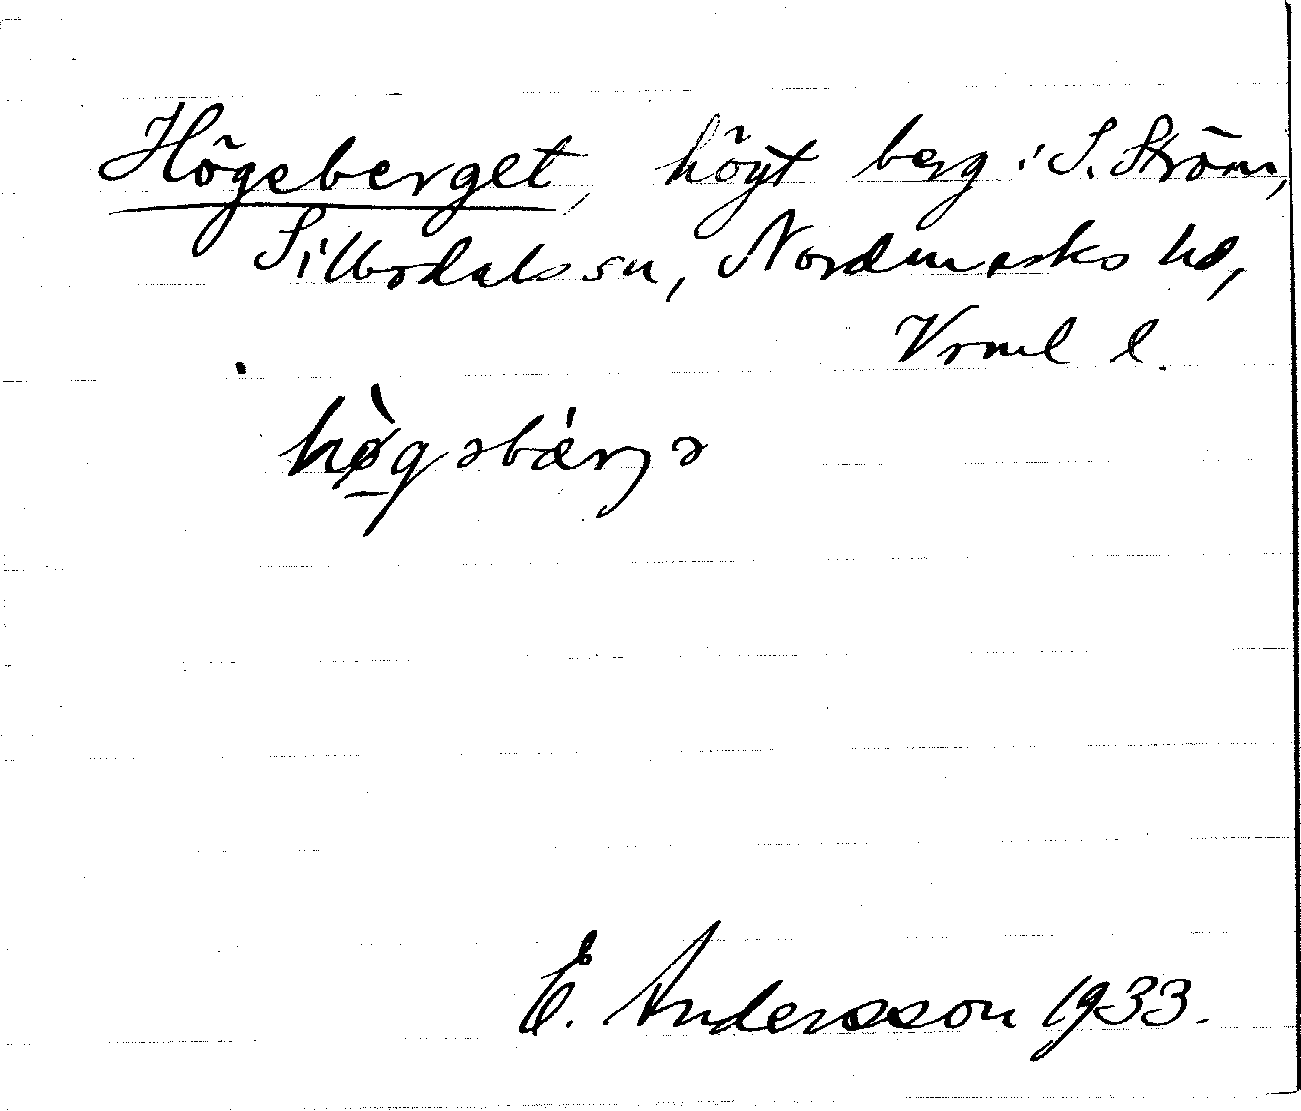 Högeberget, högt berg i S. Ström,
Silbodals sn, Nordmarks hd,
Vrml l.
hø̀gəbǽrjə
E. Andersson 1933.